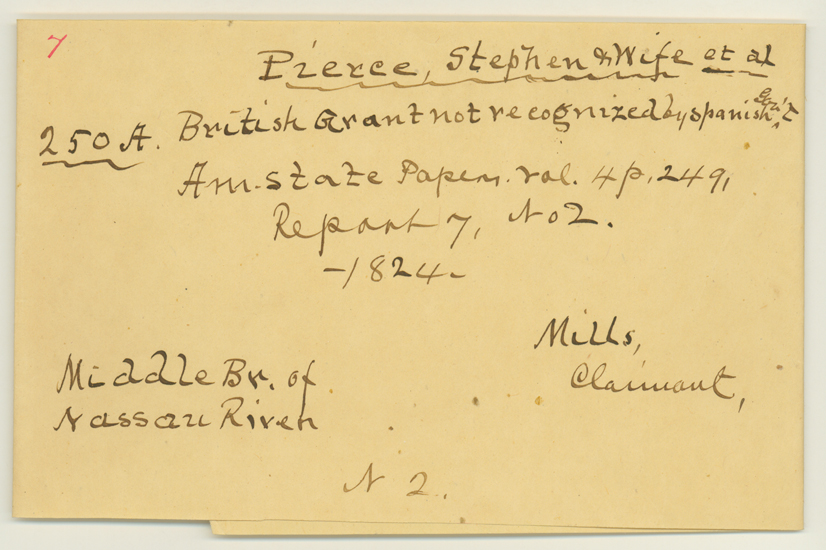 7
Pierce, Stephen & Wife et al
250 A. British Grant not recognized by Spanish Gov't
Am. State Papers. vol. 4 p. 249,
Report 7, No 2.
-1824-
Mills,
Claimant,
Middle Br. of
Nassau River
N 2.